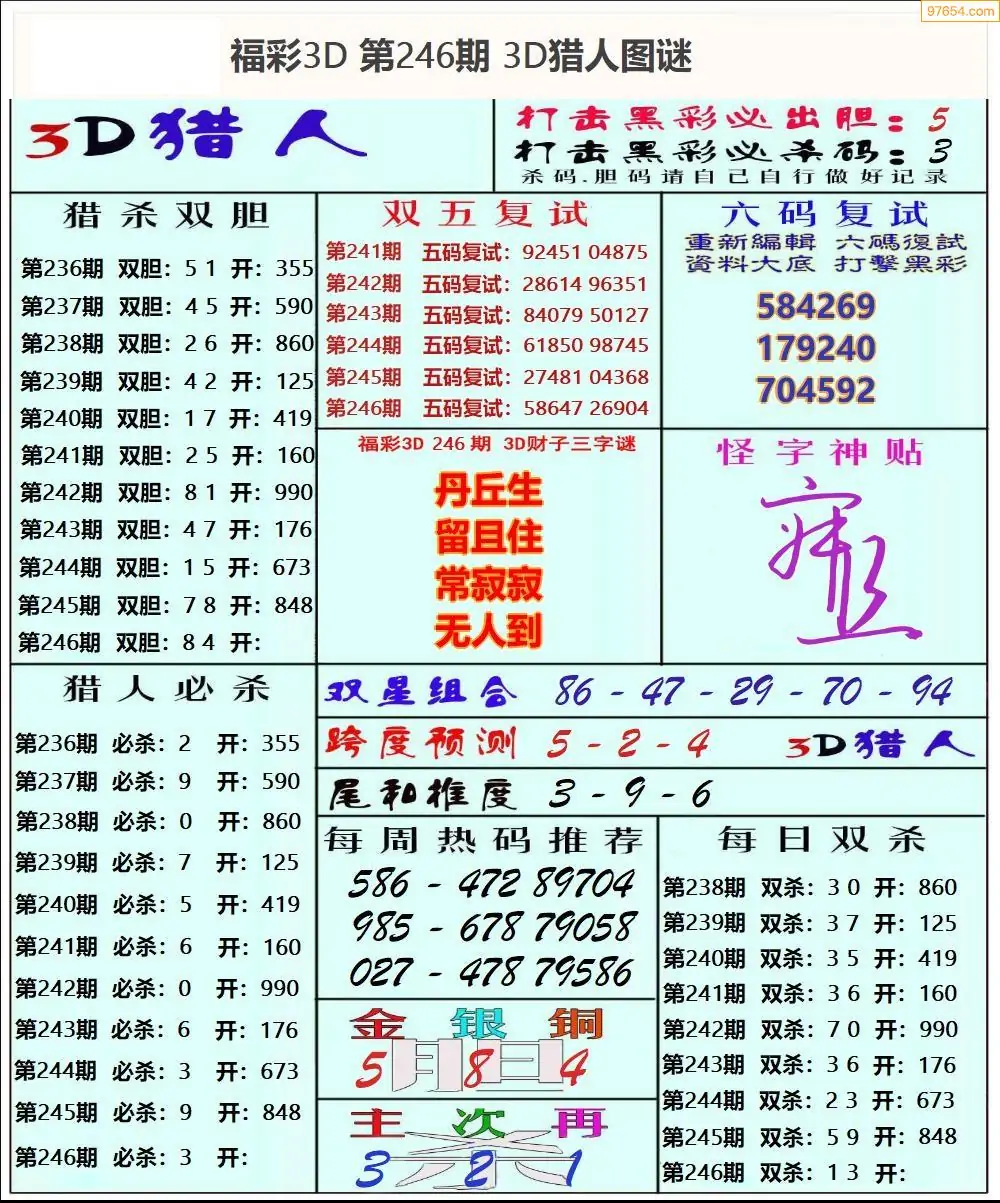 97654.com
福彩3D 第246期 3D猎人图谜
3D猎人
打击黑彩必出胆：5
打击黑彩必杀码：3
杀码.胆码请自己自行做好记录
猎杀双胆
第236期 双胆：5 1 开：355
第237期 双胆：4 5 开：590
第238期 双胆：2 6 开：860
第239期 双胆：4 2 开：125
第240期 双胆：1 7 开：419
第241期 双胆：2 5 开：160
第242期 双胆：8 1 开：990
第243期 双胆：4 7 开：176
第244期 双胆：1 5 开：673
第245期 双胆：7 8 开：848
第246期 双胆：8 4 开：
双五复试
第241期 五码复试：92451 04875
第242期 五码复试：28614 96351
第243期 五码复试：84079 50127
第244期 五码复试：61850 98745
第245期 五码复试：27481 04368
第246期 五码复试：58647 26904
六码复试
重新編輯 六碼復試
資料大底 打擊黑彩
584269
179240
704592
福彩3D 246 期 3D财子三字谜
丹丘生
留且住
常寂寂
无人到
怪字神贴
猎人必杀
第236期 必杀：2 开：355
第237期 必杀：9 开：590
第238期 必杀：0 开：860
第239期 必杀：7 开：125
第240期 必杀：5 开：419
第241期 必杀：6 开：160
第242期 必杀：0 开：990
第243期 必杀：6 开：176
第244期 必杀：3 开：673
第245期 必杀：9 开：848
第246期 必杀：3 开：
双星组合 86 - 47 - 29 - 70 - 94
跨度预测 5 - 2 - 4 3D猎人
尾和推度 3 - 9 - 6
每周热码推荐
586 - 472 89704
985 - 678 79058
027 - 478 79586
金 银 铜
胆
5 8 4
主 次 再
杀
3 2 1
每日双杀
第238期 双杀：3 0 开：860
第239期 双杀：3 7 开：125
第240期 双杀：3 5 开：419
第241期 双杀：3 6 开：160
第242期 双杀：7 0 开：990
第243期 双杀：3 6 开：176
第244期 双杀：2 3 开：673
第245期 双杀：5 9 开：848
第246期 双杀：1 3 开：